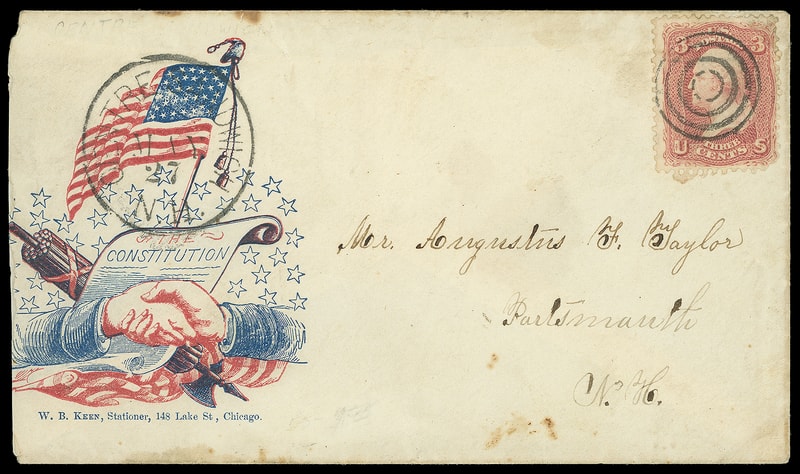 CENTRE HARMONY
JUL
27
N.H.
THE
CONSTITUTION
W. B. KEEN, Stationer, 148 Lake St, Chicago.
3 3
U THREE S
CENTS
Mr. Augustus F. Taylor
Portsmouth
N. H.